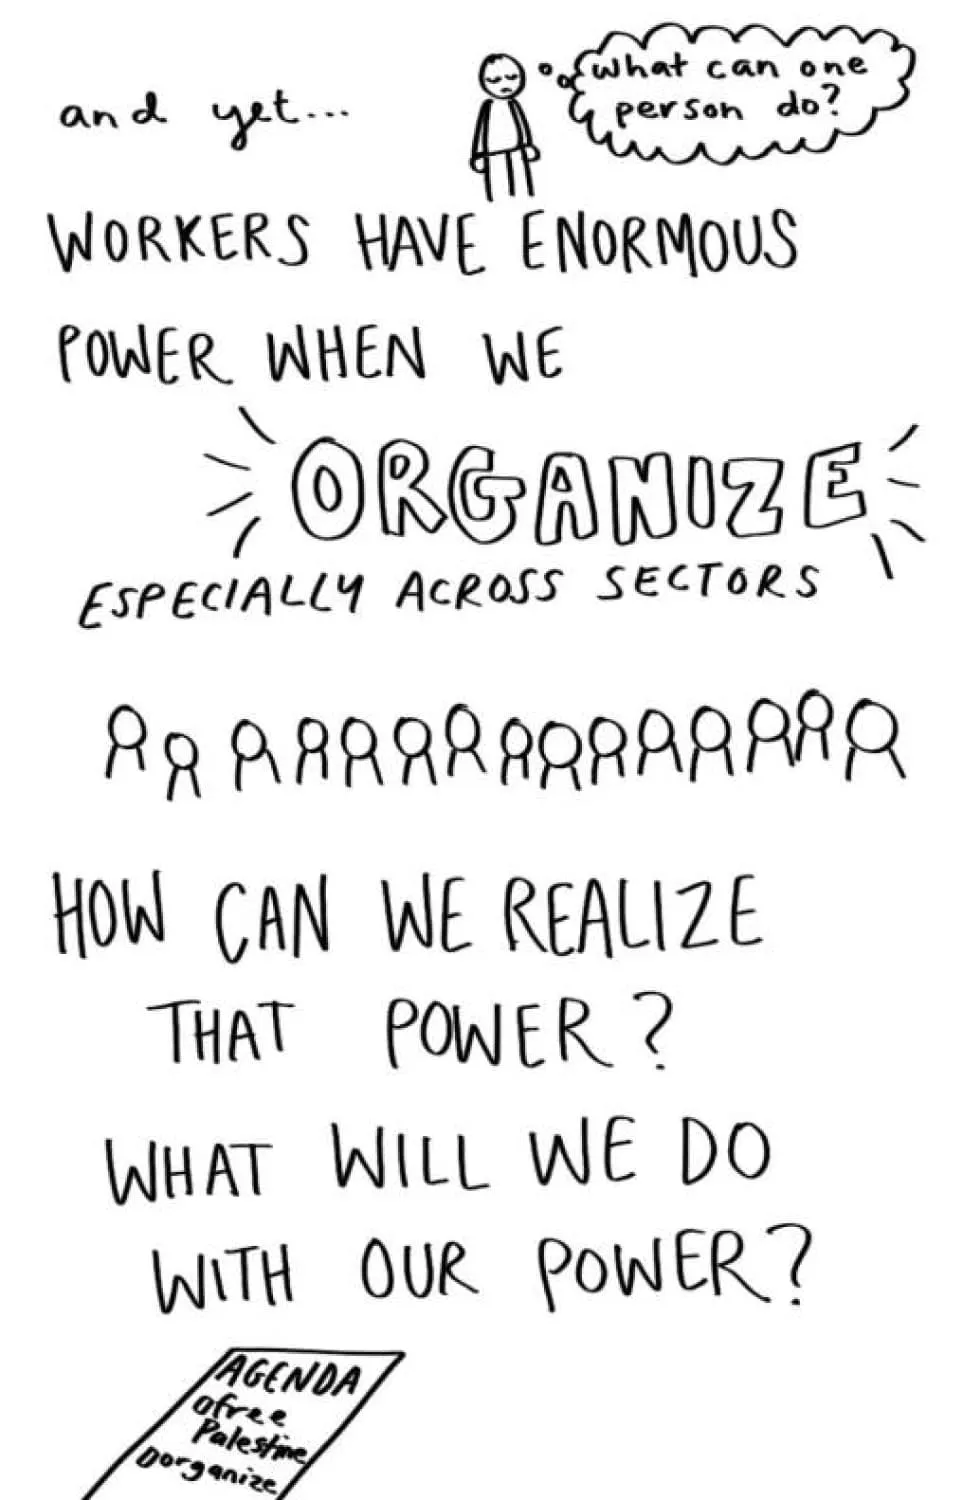 and yet...
what can one
person do?
WORKERS HAVE ENORMOUS
POWER WHEN WE
ORGANIZE
ESPECIALLY ACROSS SECTORS
HOW CAN WE REALIZE
THAT POWER?
WHAT WILL WE DO
WITH OUR POWER?
AGENDA
free
Palestine
organize